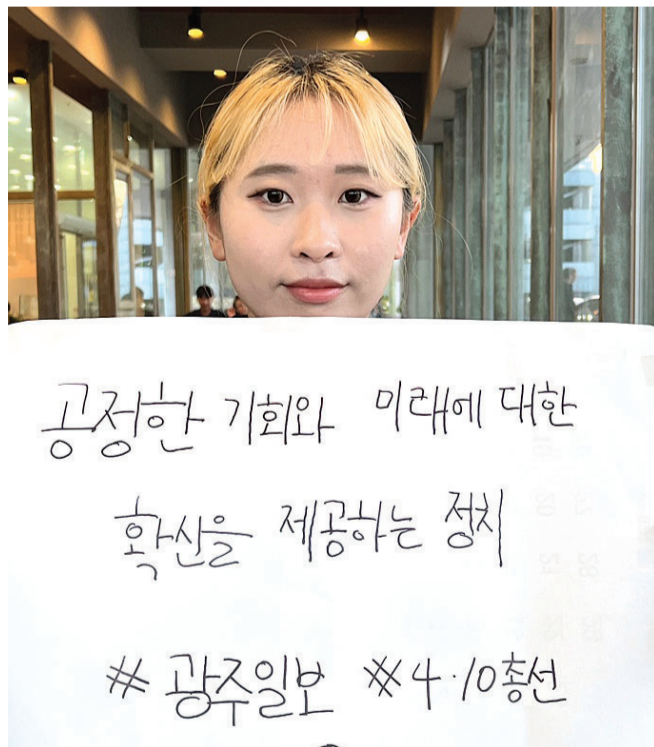 공정한 기회와 미래에 대한
확산을 제공하는 정치
#광주일보 #4·10총선